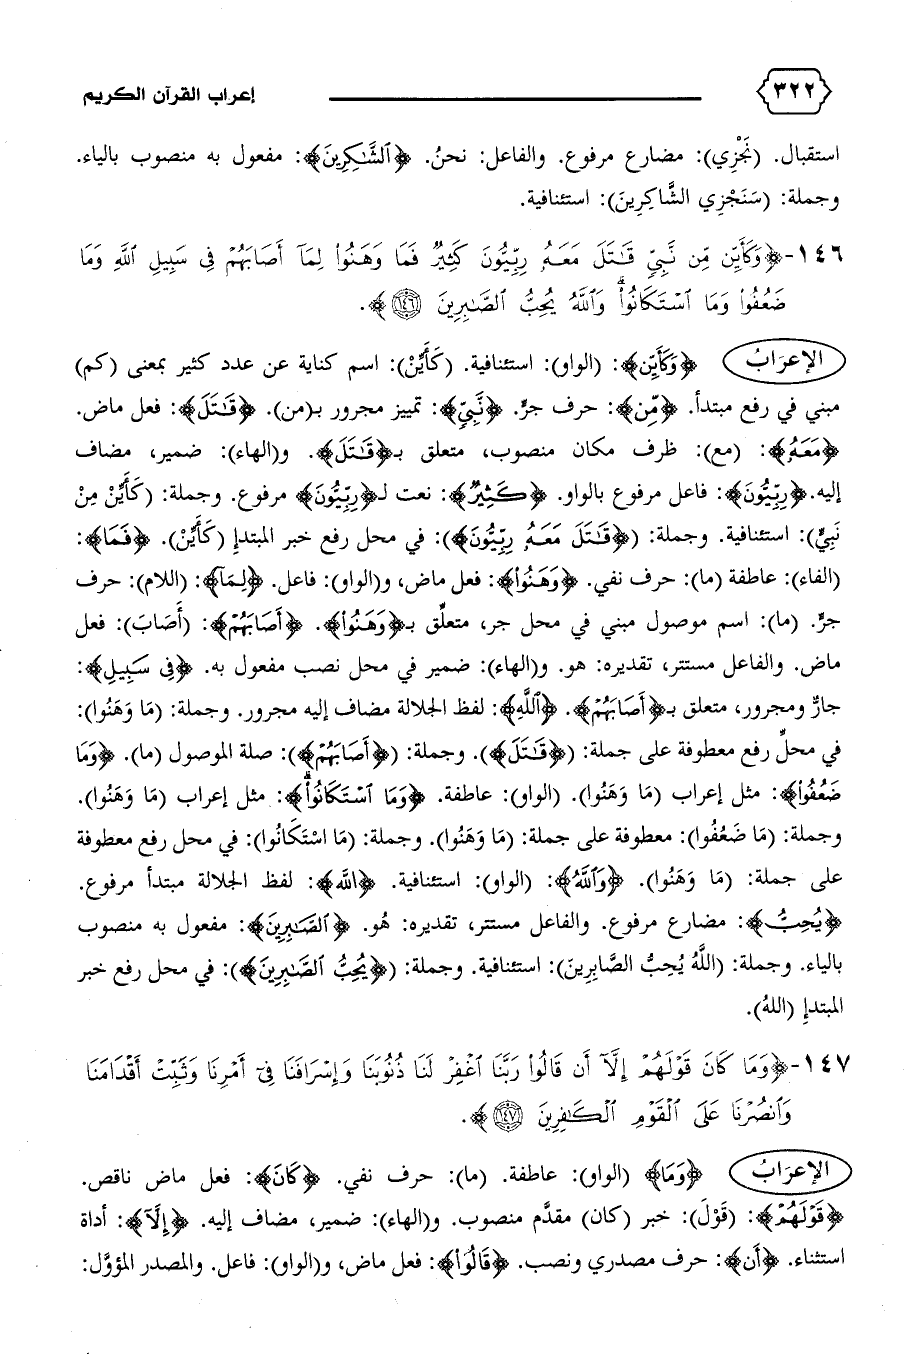 ٣٢٢ إعراب القرآن الكريم
استقبال. (نَجْزِي): مضارع مرفوع. والفاعل: نحنُ. ﴿ٱلشَّٰكِرِينَ﴾: مفعول به منصوب بالياء.
وجملة: (سَنَجْزِي الشَّاكِرِينَ): استئنافية.
١٤٦-﴿وَكَأَيِّن مِّن نَّبِيٍّ قَٰتَلَ مَعَهُۥ رِبِّيُّونَ كَثِيرٌ فَمَا وَهَنُوا۟ لِمَآ أَصَابَهُمْ فِى سَبِيلِ ٱللَّهِ وَمَا
ضَعُفُوا۟ وَمَا ٱسْتَكَانُوا۟ ۗ وَٱللَّهُ يُحِبُّ ٱلصَّٰبِرِينَ ١٤٦﴾.
الإعرَابُ ﴿وَكَأَيِّن﴾: (الواو): استئنافية. (كَأَيِّنْ): اسم كناية عن عدد كثير بمعنى (كم)
مبني في رفع مبتدأ. ﴿مِّن﴾: حرف جرٍّ. ﴿نَّبِيٍّ﴾: تمييز مجرور بـ(من). ﴿قَٰتَلَ﴾: فعل ماض.
﴿مَعَهُۥ﴾: (مع): ظرف مكان منصوب، متعلق بـ﴿قَٰتَلَ﴾. و(الهاء): ضمير، مضاف
إليه. ﴿رِبِّيُّونَ﴾: فاعل مرفوع بالواو. ﴿كَثِيرٌ﴾: نعت لـ﴿رِبِّيُّونَ﴾ مرفوع. وجملة: (كَأَيِّنْ مِنْ
نَبِيٍّ): استئنافية. وجملة: (﴿قَٰتَلَ مَعَهُۥ رِبِّيُّونَ﴾): في محل رفع خبر المبتدإ (كَأَيِّنْ). ﴿فَمَا﴾:
(الفاء): عاطفة (ما): حرف نفي. ﴿وَهَنُوا۟﴾: فعل ماض، و(الواو): فاعل. ﴿لِمَآ﴾: (اللام): حرف
جرٍّ. (ما): اسم موصول مبني في محل جر، متعلِّق بـ﴿وَهَنُوا۟﴾. ﴿أَصَابَهُمْ﴾: (أَصَابَ): فعل
ماض. والفاعل مستتر، تقديره: هو. و(الهاء): ضمير في محل نصب مفعول به. ﴿فِى سَبِيلِ﴾:
جارٌّ ومجرور، متعلق بـ﴿أَصَابَهُمْ﴾. ﴿ٱللَّهِ﴾: لفظ الجلالة مضاف إليه مجرور. وجملة: (مَا وَهَنُوا):
في محلِّ رفع معطوفة على جملة: (﴿قَٰتَلَ﴾). وجملة: (﴿أَصَابَهُمْ﴾): صلة الموصول (ما). ﴿وَمَا
ضَعُفُوا۟﴾: مثل إعراب (مَا وَهَنُوا). (الواو): عاطفة. ﴿وَمَا ٱسْتَكَانُوا۟ ۗ﴾: مثل إعراب (مَا وَهَنُوا).
وجملة: (مَا ضَعُفُوا): معطوفة على جملة: (مَا وَهَنُوا). وجملة: (مَا اسْتَكَانُوا): في محل رفع معطوفة
على جملة: (مَا وَهَنُوا). ﴿وَٱللَّهُ﴾: (الواو): استئنافية. ﴿الله﴾: لفظ الجلالة مبتدأ مرفوع.
﴿يُحِبُّ﴾: مضارع مرفوع. والفاعل مستتر، تقديره: هُو. ﴿ٱلصَّٰبِرِينَ﴾: مفعول به منصوب
بالياء. وجملة: (اللَّهُ يُحِبُّ الصَّابِرِينَ): استئنافية. وجملة: (﴿يُحِبُّ ٱلصَّٰبِرِينَ﴾): في محل رفع خبر
المبتدإ (اللهُ).
١٤٧-﴿وَمَا كَانَ قَوْلَهُمْ إِلَّآ أَن قَالُوا۟ رَبَّنَا ٱغْفِرْ لَنَا ذُنُوبَنَا وَإِسْرَافَنَا فِىٓ أَمْرِنَا وَثَبِّتْ أَقْدَامَنَا
وَٱنصُرْنَا عَلَى ٱلْقَوْمِ ٱلْكَٰفِرِينَ ١٤٧﴾.
الإعرَابُ ﴿وَمَا﴾ (الواو): عاطفة. (ما): حرف نفي. ﴿كَانَ﴾: فعل ماض ناقص.
﴿قَوْلَهُمْ﴾: (قَوْلَ): خبر (كان) مقدَّم منصوب. و(الهاء): ضمير، مضاف إليه. ﴿إِلَّآ﴾: أداة
استثناء. ﴿أَن﴾: حرف مصدري ونصب. ﴿قَالُوا۟﴾: فعل ماض، و(الواو): فاعل. والمصدر المؤوَّل: